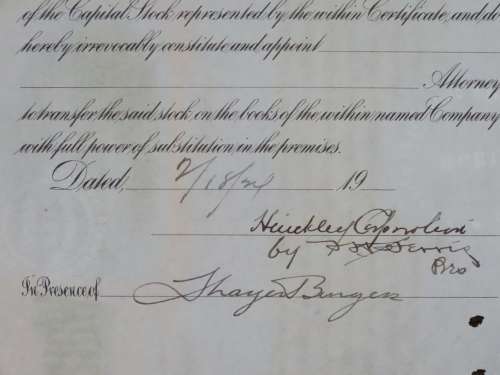 of the Capital Stock represented by the within Certificate, and do
hereby irrevocably constitute and appoint
Attorney
to transfer the said stock on the books of the within named Company
with full power of substitution in the premises.
Dated, 2/18/24 19
Hinckley Corporation
by
Pres
In Presence of Thayer Burgess